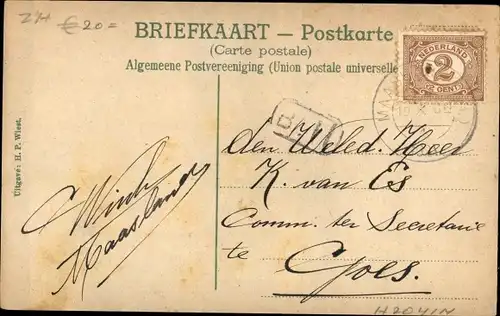 ZH € 20=
BRIEFKAART — Postkarte
(Carte postale)
Algemeene Postvereeniging (Union postale universelle
NEDERLAND
2
2 CENT
MAA
den Weled. Heer
K. van Es
Comm. ter Secretarie
te
Goes.
Maasland
Uitgave: H. P. Wiest.